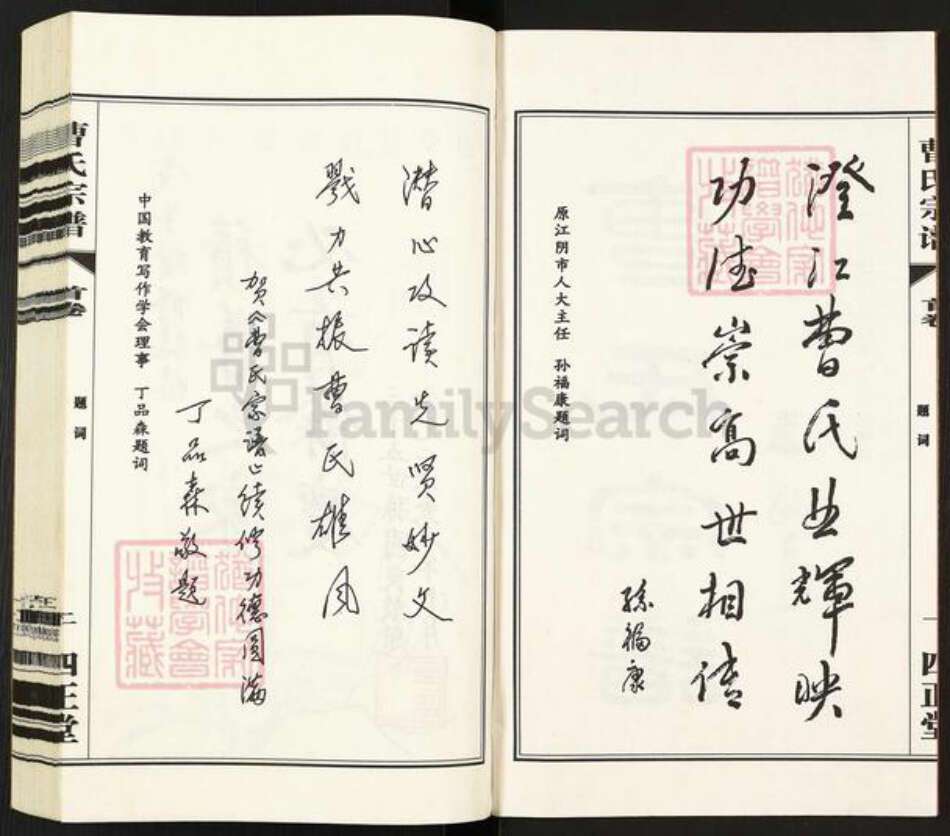 曹氏宗谱 首卷 题词 一 四正堂
澄江曹氏辉映
功德崇高世相传
孙福康
原江阴市人大主任 孙福康题词
猶他家譜學會收藏
潜心攻读先贤妙文
戮力共振曹氏雄风
贺《曹氏宗谱》续修功德圆满
丁品森敬题
中国教育写作学会理事 丁品森题词
猶他家譜學會收藏
曹氏宗谱 首卷 题词 二 四正堂
FamilySearch